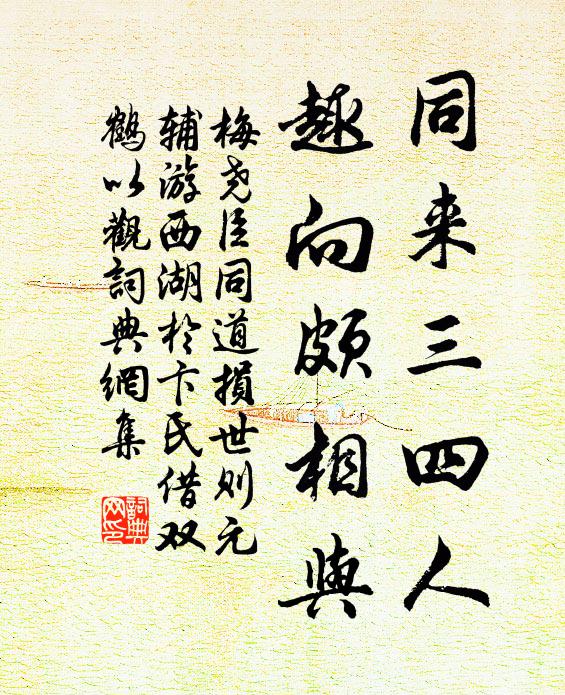 同来三四人
趣向颇相與
梅尧臣同道損世则元
辅游西湖於卞氏借双
鹤以觀詞典網集
詞典
网印